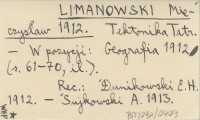 LIMANOWSKI Mie-
czysław 1912. Tektonika Tatr.
— W pozycji: Geografia 1912
(s. 61-70, il.).
Rec.: Dunikowski E.H.
1912. — Sujkowski A. 1913.